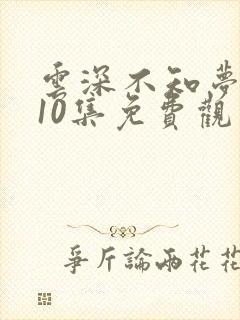 雲深不知夢
10集免費觀
爭斤論兩花花